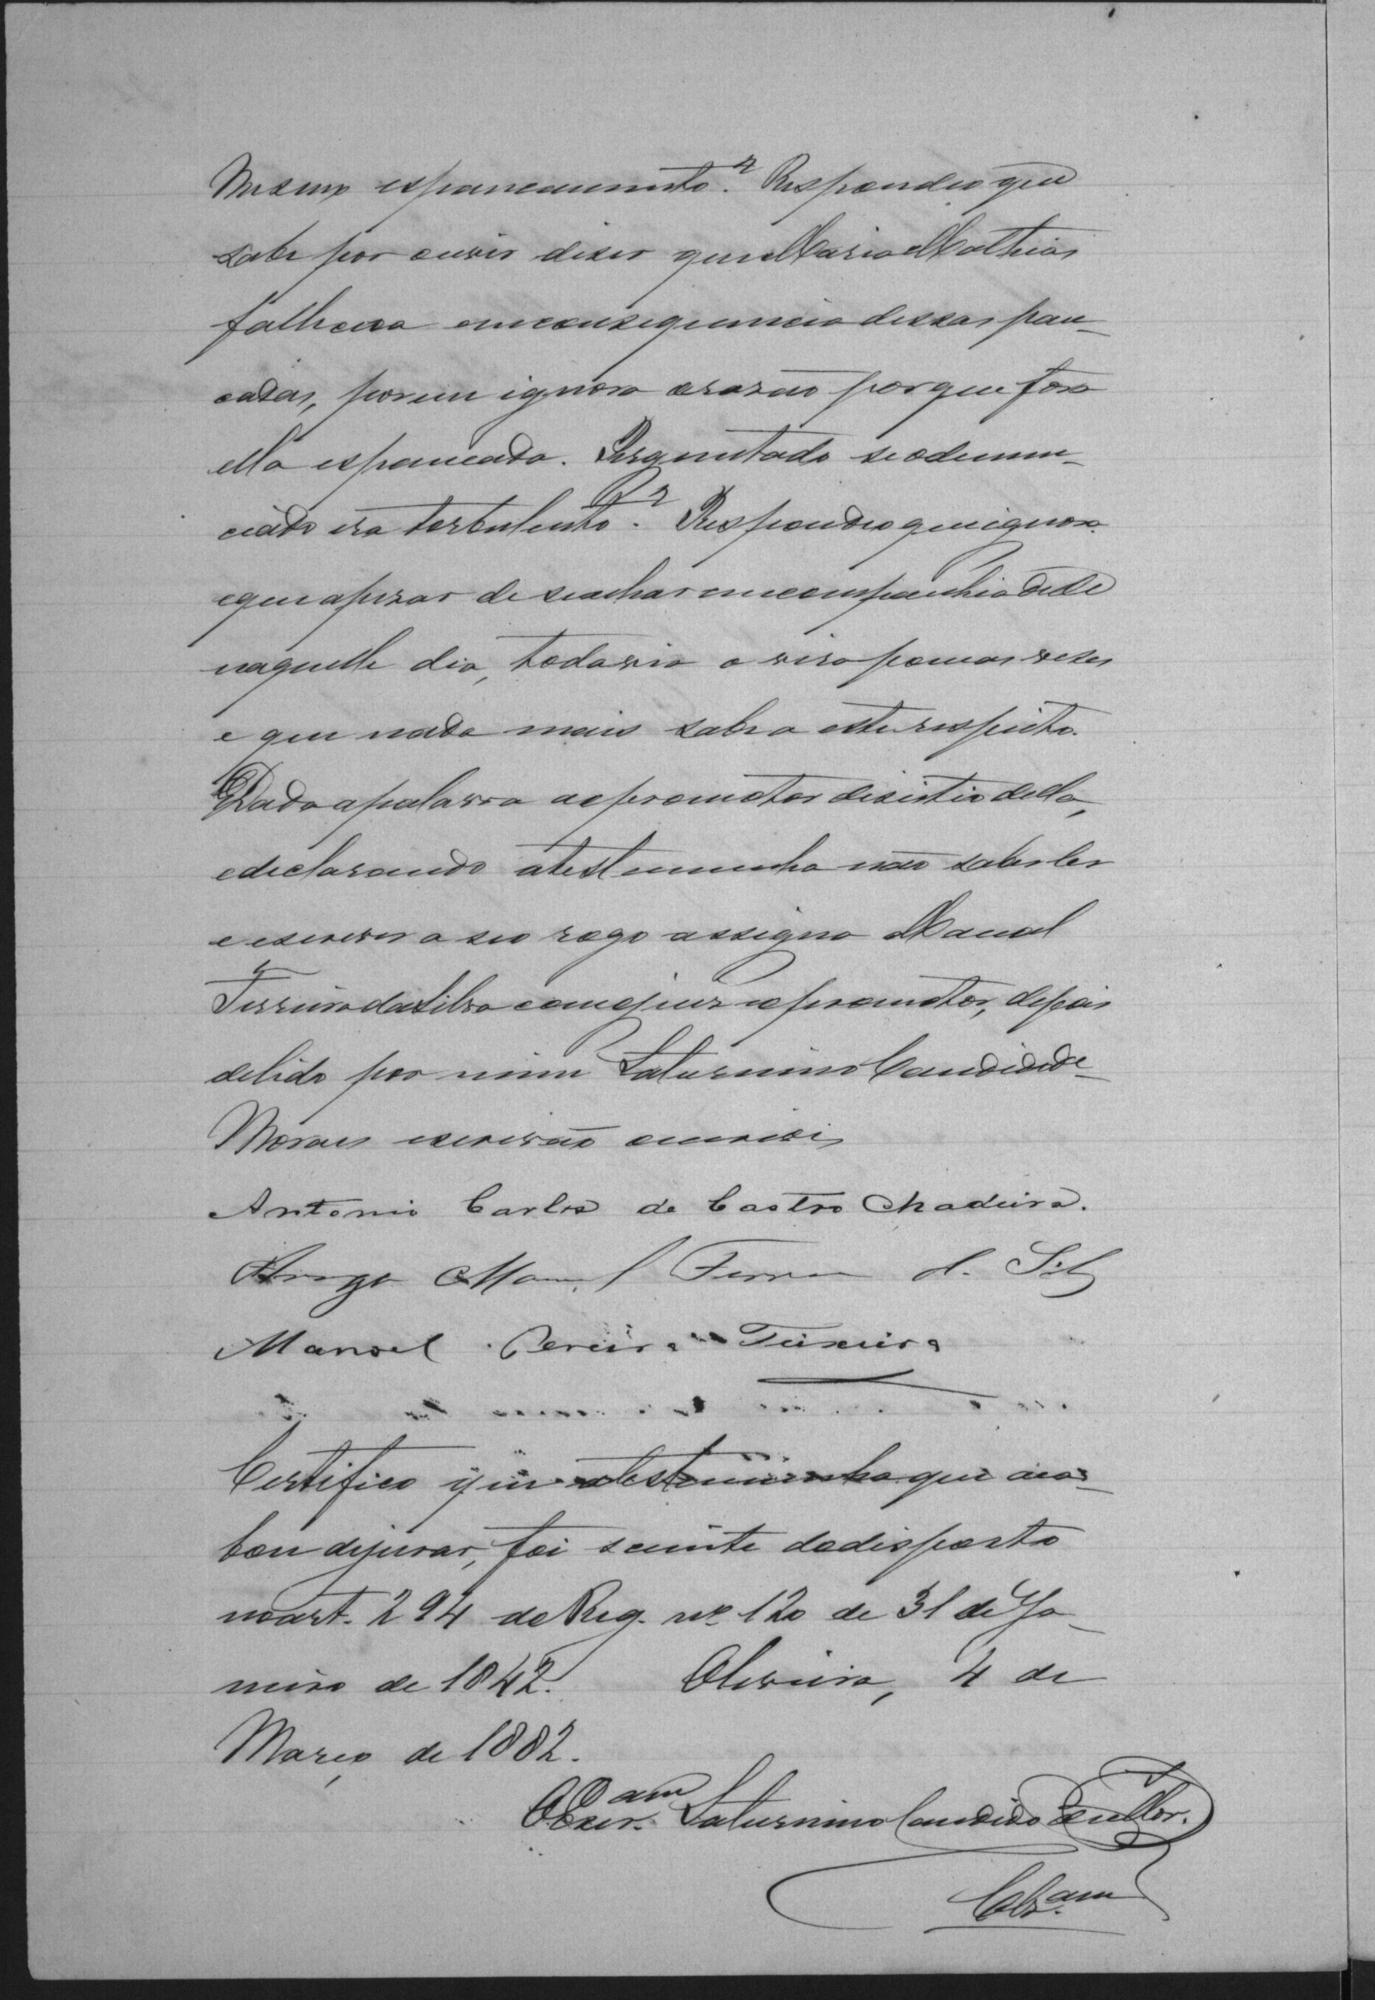 mesmo espancamento? Respondeo que
sabe por ouvir diser que Maria Mathias
falhava em consequencia dessas pan-
cadas, porem ignora a rasão porque fora
ella espancada. Perguntado se o denun-
ciado era torbulento? Respondeo que ignora
e que apesar de se achar em companhia delle
naquelle dia, todavia o vira poucas veses
e que nada mais sabe a este respeito.
Dada a palavra ao promotor desistio della,
e declarando a testemunha não saber ler
e escrever a seo rogo assigna Manoel
Ferreira da Silva com o juiz e o promotor, depois
de lido por mim Saturnino Candido de
Moraes escrivão o escrivi
Antonio Carlos de Castro Madeira.
Arogo Manoel Ferrea d. Silva
Manoel Pereira Teixeira
Certifico que a testemunha que aca-
bou de jurar, foi sciente do disposto
no art. 294 do Reg. nº 120 de 31 de Ja-
neiro de 1842. Oliveira, 4 de
Março de 1882.
O Escr.am Saturnino Candido de Mor.
Clsam